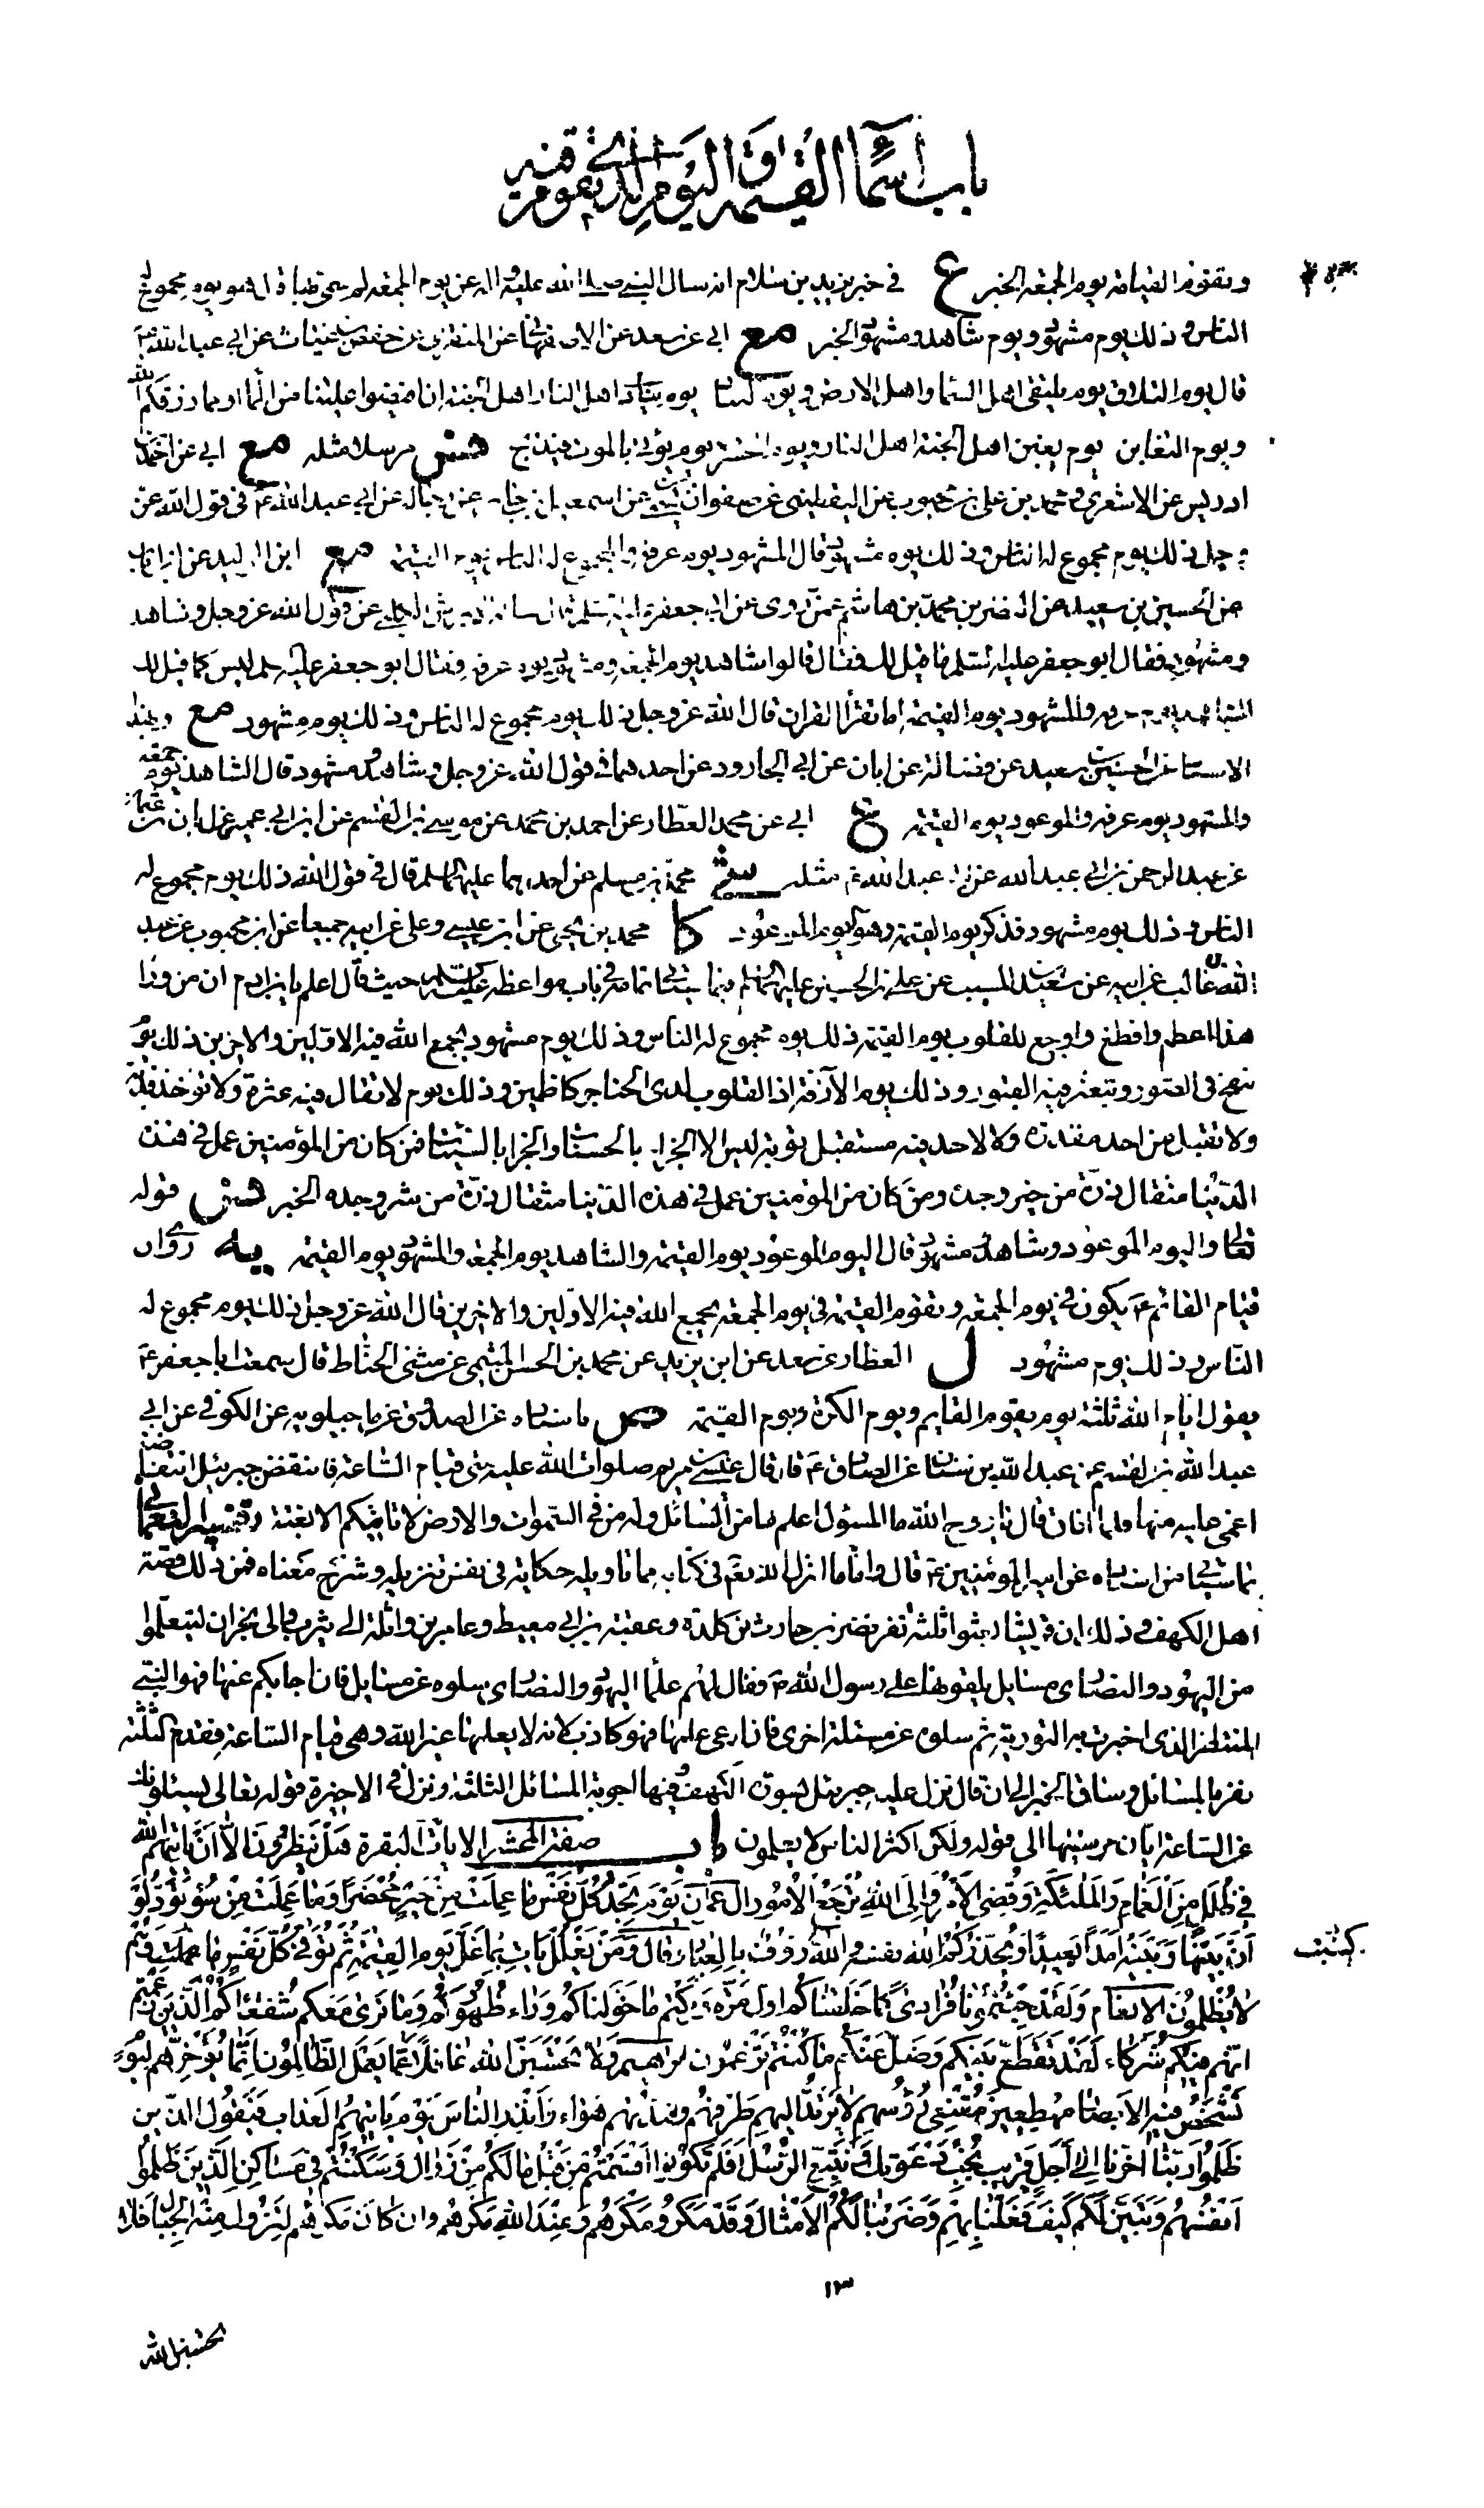 باب أسماء القيمة واليوم الذي تقوم فيه
وتقوم القيامة يوم الجمعة الخبر ع في خبر يزيد بن سلام انه سال النبي صلى الله عليه واله عن يوم الجمعة لم سمي بها قال هو يوم مجموع له
الناس وذلك يوم مشهود ويوم شاهد ومشهود الخبر مع ابي عن سعد عن الاصفهاني عن المنقري عن حفص بن غياث عن ابي عبد الله ع
قال يوم التلاق يوم يلتقي اهل السماء واهل الارض ويوم التناد يوم ينادي اهل النار اهل الجنة ان افيضوا علينا من الماء او مما رزقكم الله
ويوم التغابن يوم يغبن اهل الجنة اهل النار ويوم الحسرة يوم يؤتى بالموت فيذبح مرسلا مثله مع ابي عن احمد
ادريس عن الاشعري عن محمد بن علي بن محبوب عن اليقطيني عن صفوان بن يحيى عن اسمعيل بن جابر عن رجاله عن ابي عبد الله ع في قول الله عز
وجل ذلك يوم مجموع له الناس وذلك يوم مشهود قال المشهود يوم عرفة والمجموع له الناس يوم القيمة مع ابن الوليد عن ابن ابان
عن الحسين بن سعيد عن النضر بن محمد بن هاشم عمن روى عن ابي جعفر عن قول الله عز وجل وشاهد
ومشهود فقال ابو جعفر عليه السلم ما قيل لك فقال قالوا شاهد يوم الجمعة ومشهود يوم عرفة فقال ابو جعفر عليه السلم ليس كما قيل لك
الشاهد يوم عرفة والمشهود يوم القيمة اما تقرأ القران قال الله عز وجل ذلك يوم مجموع له الناس وذلك يوم مشهود مع وبهذا
الاسناد عن الحسين بن سعيد عن فضالة عن ابان عن ابي الجارود عن احدهما في قول الله عز وجل وشاهد ومشهود قال الشاهد يوم الجمعة
والمشهود يوم عرفة والموعود يوم القيمة مع ابي عن محمد العطار عن احمد بن محمد عن موسى بن القسم عن ابن ابي عمير عن ابان بن عثمان
عن عبد الرحمن بن ابي عبد الله عن ابي عبد الله ع مثله شي محمد بن مسلم عن احدهما عليهما السلم قال في قول الله ذلك يوم مجموع له
الناس وذلك يوم مشهود فذكر يوم القيمة وهو اليوم الموعود كا محمد بن يحيى عن ابن عيسى وعلي عن ابيه جميعا عن ابن محبوب عن عبد
الله بن غالب عن ابيه عن سعيد بن المسيب عن علي بن الحسين عليهما السلم فيما سياتي تمامه في باب مواعظه عليه السلم حيث قال اعلم يا ابن ادم ان من وراء
هذا اعظم وافظع واوجع للقلوب يوم القيمة ذلك يوم مجموع له الناس وذلك يوم مشهود يجمع الله فيه الاولين والاخرين ذلك يوم
ينفخ في الصور وتبعثر فيه القبور وذلك يوم الآزفة اذ القلوب لدى الحناجر كاظمين وذلك يوم لا تقال فيه عثرة ولا تؤخذ فدية
ولا تقبل من احد معذرة ولا لاحد فيه مستقبل توبة ليس الا الجزاء بالحسنات والجزاء بالسيئات فمن كان من المؤمنين عمل في هذه
الدنيا مثقال ذرة من خير وجده ومن كان من المؤمنين عمل في هذه الدنيا مثقال ذرة من شر وجده الخبر قوله
تعالى واليوم الموعود وشاهد ومشهود قال اليوم الموعود يوم القيمة والشاهد يوم الجمعة والمشهود يوم القيمة يه روي ان
قيام القائم ع يكون في يوم الجمعة وتقوم القيمة في يوم الجمعة يجمع الله فيه الاولين والاخرين قال الله عز وجل ذلك يوم مجموع له
الناس وذلك يوم مشهود ل العطار عن سعد عن ابن يزيد عن محمد بن الحسن الميثمي عن مثنى الحناط قال سمعت ابا جعفر ع
يقول ايام الله ثلثة يوم يقوم القايم ويوم الكرة ويوم القيمة ص باسناده عن الصدوق عن ماجيلويه عن الكوفي عن ابي
عبد الله بن القسم عن عبد الله بن سنان عن الصادق ع قال قال عيسى بن مريم صلوات الله عليه متى قيام الساعة فانتفض جبرئيل انتفاضة
اغمي عليه منها فلما افاق قال يا روح الله ما المسؤل اعلم بها من السائل وله من في السموات والارض لا تاتيكم الا بغتة
بما سياتي من اسناده عن امير المؤمنين ع قال واما ما انزل الله تعالى في كتابه مما تاويله حكاية في نفس تنزيله وشرح معناه فمن ذلك قصة
اهل الكهف وذلك ان قريشا بعثوا ثلثة نفر نضر بن حارث بن كلدة وعقبة بن ابي معيط وعامر بن واثلة الى يثرب والى نجران ليتعلموا
من اليهود والنصارى مسايل يلقونها على رسول الله ص فقال لهم علماء اليهود والنصارى سلوه عن مسايل فان اجابكم عنها فهو النبي
المنتظر الذي اخبرت به التورية ثم سلوه عن مسئلة اخرى فان ادعى علمها فهو كاذب لانه لا يعلمها غير الله وهي قيام الساعة فقدم الثلثة
نفر بالمسائل وساق الخبر الى ان قال نزل عليه جبريل بسورة الكهف وفيها اجوبة المسائل الثلثة ونزل في الاخيرة قوله تعالى يسئلونك
عن الساعة ايان مرسيها الى قوله ولكن اكثر الناس لا يعلمون باب صفة المحشر الايات البقرة هَلْ يَنْظُرُونَ إِلَّا أَنْ يَأْتِيَهُمُ اللَّهُ
فِي ظُلَلٍ مِنَ الْغَمَامِ وَالْمَلٰئِكَةُ وَقُضِيَ الْأَمْرُ وَإِلَى اللَّهِ تُرْجَعُ الْأُمُورُ ال عمران يَوْمَ تَجِدُ كُلُّ نَفْسٍ مَا عَمِلَتْ مِنْ خَيْرٍ مُحْضَرًا وَمَا عَمِلَتْ مِنْ سُوءٍ تَوَدُّ لَوْ
أَنَّ بَيْنَهَا وَبَيْنَهُ أَمَدًا بَعِيدًا وَيُحَذِّرُكُمُ اللَّهُ نَفْسَهُ وَاللَّهُ رَؤُفٌ بِالْعِبَادِ وقال وَمَنْ يَغْلُلْ يَأْتِ بِمَا غَلَّ يَوْمَ الْقِيٰمَةِ ثُمَّ تُوَفَّى كُلُّ نَفْسٍ مَا كسبت وَهُمْ
لَا يُظْلَمُونَ الانعام وَلَقَدْ جِئْتُمُونَا فُرَادَى كَمَا خَلَقْنَاكُمْ أَوَّلَ مَرَّةٍ وَتَرَكْتُمْ مَا خَوَّلْنَاكُمْ وَرَاءَ ظُهُورِكُمْ وَمَا نَرَى مَعَكُمْ شُفَعَاءَكُمُ الَّذِينَ زَعَمْتُمْ
أَنَّهُمْ فِيكُمْ شُرَكَاءُ لَقَدْ تَقَطَّعَ بَيْنَكُمْ وَضَلَّ عَنْكُمْ مَا كُنْتُمْ تَزْعُمُونَ ابراهيم وَلَا تَحْسَبَنَّ اللَّهَ غَافِلًا عَمَّا يَعْمَلُ الظَّالِمُونَ إِنَّمَا يُؤَخِّرُهُمْ لِيَوْمٍ
تَشْخَصُ فِيهِ الْأَبْصَارُ مُهْطِعِينَ مُقْنِعِي رُؤُسِهِمْ لَا يَرْتَدُّ إِلَيْهِمْ طَرْفُهُمْ وَأَفْئِدَتُهُمْ هَوَاءٌ وَأَنْذِرِ النَّاسَ يَوْمَ يَأْتِيهِمُ الْعَذَابُ فَيَقُولُ الَّذِينَ
ظَلَمُوا رَبَّنَا أَخِّرْنَا إِلَى أَجَلٍ قَرِيبٍ نُجِبْ دَعْوَتَكَ وَنَتَّبِعِ الرُّسُلَ أَوَلَمْ تَكُونُوا أَقْسَمْتُمْ مِنْ قَبْلُ مَا لَكُمْ مِنْ زَوَالٍ وَسَكَنْتُمْ فِي مَسَاكِنِ الَّذِينَ ظَلَمُوا
أَنْفُسَهُمْ وَتَبَيَّنَ لَكُمْ كَيْفَ فَعَلْنَا بِهِمْ وَضَرَبْنَا لَكُمُ الْأَمْثَالَ وَقَدْ مَكَرُوا مَكْرَهُمْ وَعِنْدَ اللَّهِ مَكْرُهُمْ وَإِنْ كَانَ مَكْرُهُمْ لِتَزُولَ مِنْهُ الْجِبَالُ فَلَا
١٣
تحسبن الله